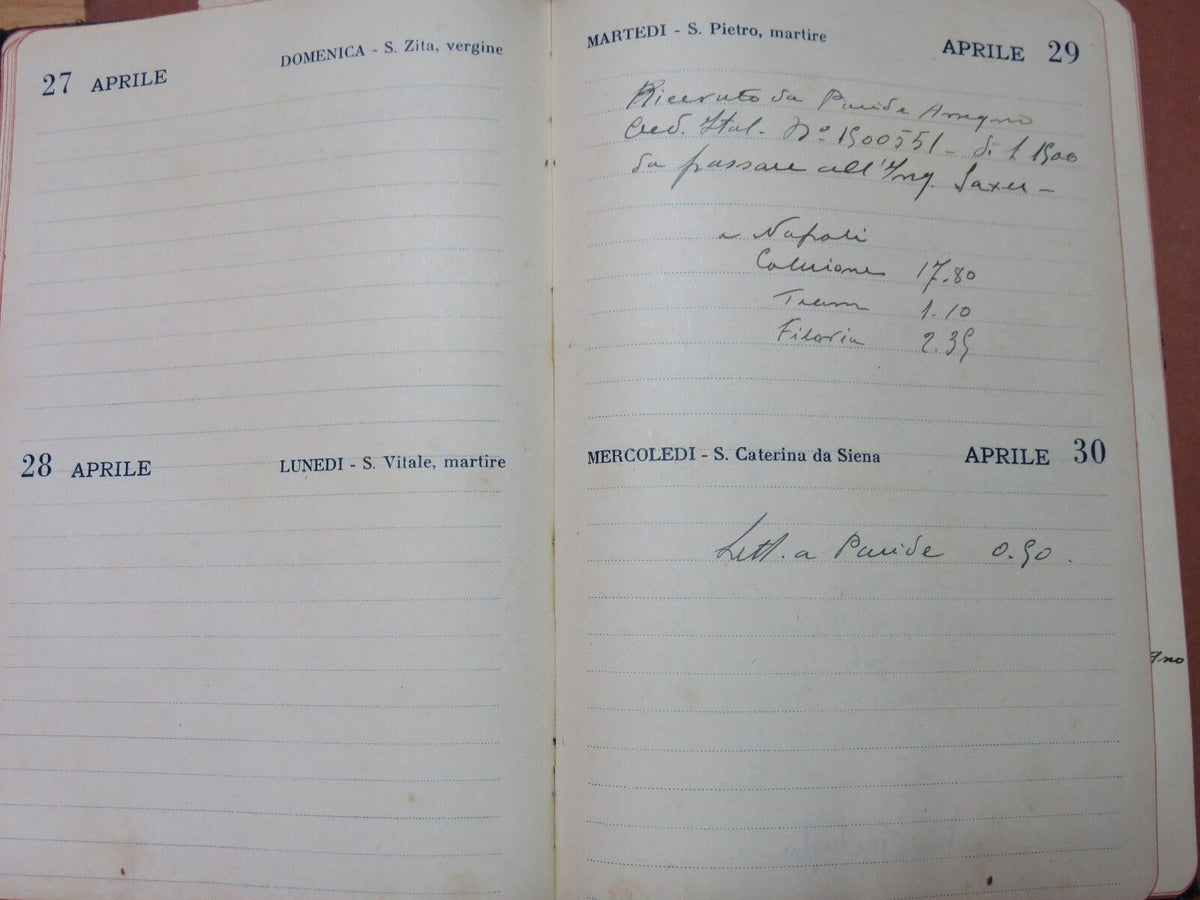 27 APRILE DOMENICA - S. Zita, vergine
28 APRILE LUNEDI - S. Vitale, martire
MARTEDI - S. Pietro, martire APRILE 29
Ricevuto da Paride
Cred. Ital. Nº 1900551 - di £ 1900
da passare all'Ing. Saxer -
a Napoli
Colazione 17.80
Tram 1.10
Filovia 2.35
MERCOLEDI - S. Caterina da Siena APRILE 30
Lett. a Paride 0.50.